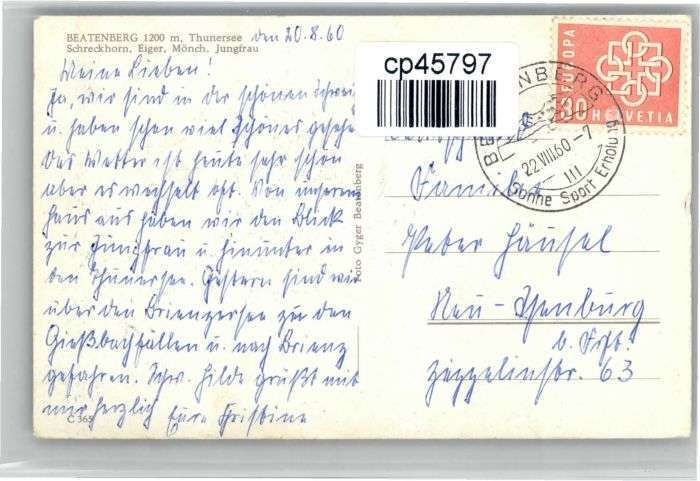 BEATENBERG 1200 m, Thunersee
Schreckhorn, Eiger, Mönch, Jungfrau
den 20.8.60
Meine Lieben!
Ja, wir sind in der schönen Schweiz
u. haben schon viel Schönes gesehen
Das Wetter ist heute sehr schön
aber es wechselt oft. Von unserem
Haus aus haben wir den Blick
zur Jungfrau u. hinunter in
den Thunersee. Gestern sind wir
über den Brienzersee zu den
Gießbachfällen u. nach Brienz
gefahren. Schw. Hilde grüßt mit
mir herzlich Eure Christine
C 365
Foto Gyger Beatenberg
cp45797
EUROPA
30
HELVETIA
22.VIII.60-7
III
Sonne Sport Erholung
Familie
Peter Häusel
Neu-Isenburg
b. Frkft.
Zeppelinstr. 63